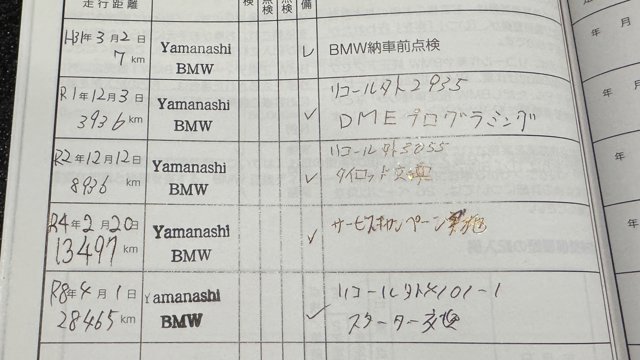 走行距離
検 点検 点検 備
H31年3月2日
7 km
Yamanashi
BMW
レ
BMW納車前点検
R1年12月3日
3936 km
Yamanashi
BMW
✓
リコール外ト2935
DMEプログラミング
R2年12月12日
8936 km
Yamanashi
BMW
✓
リコール外ト3055
タイロッド交換
R4年2月20日
13497 km
Yamanashi
BMW
✓
サービスキャンペーン実施
R8年4月1日
28465 km
Yamanashi
BMW
✓
リコール外ト4101-1
スターター交換
年 月
年 月
年 月
年 月
年 月